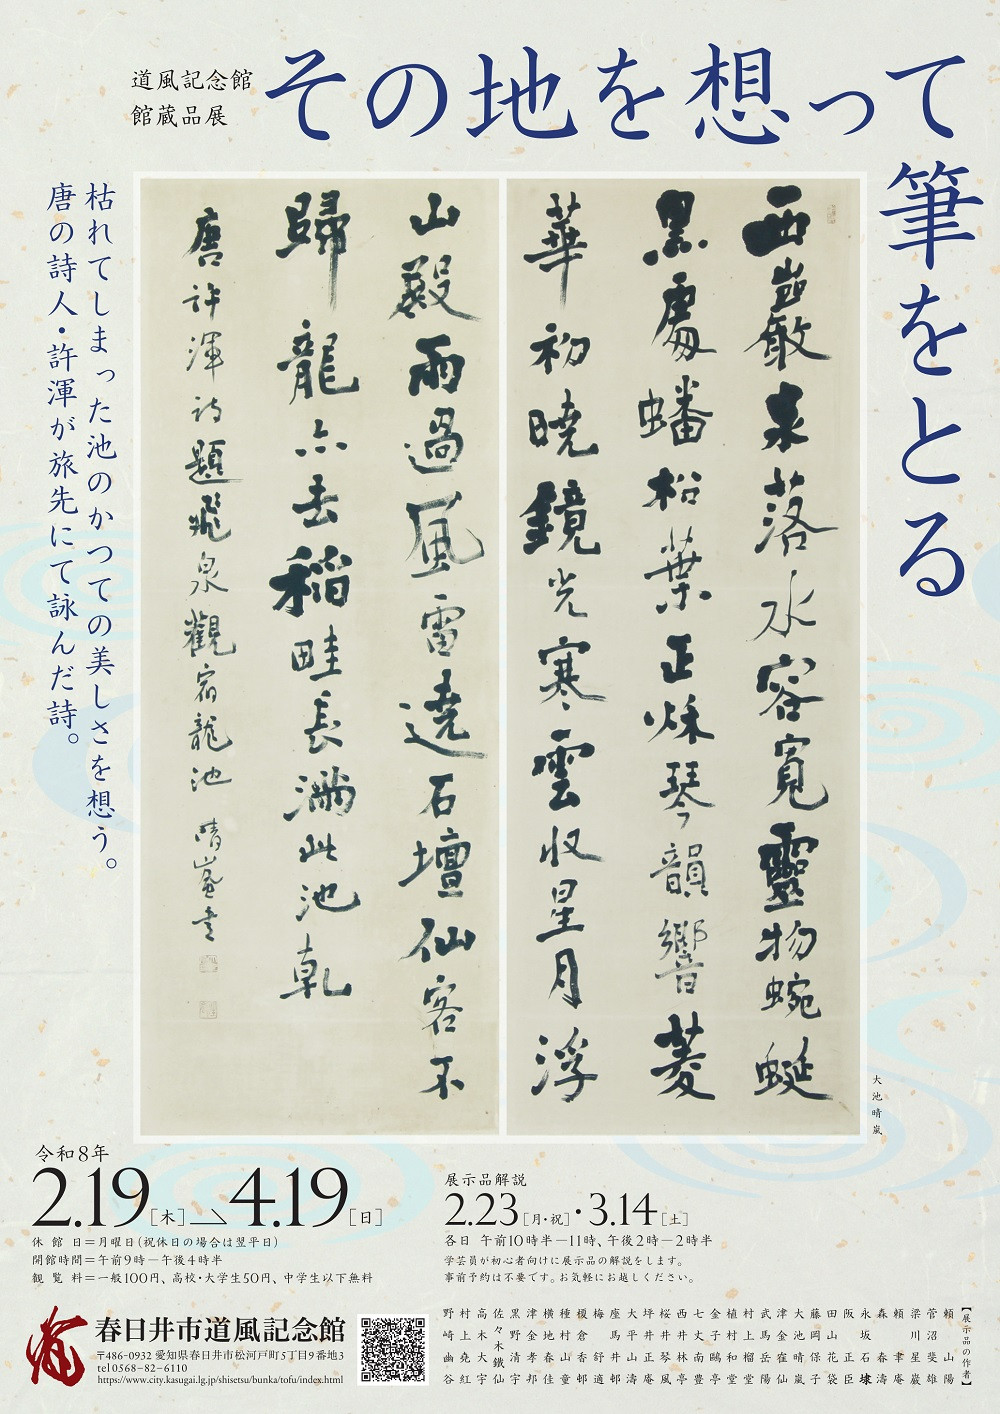 道風記念館
館蔵品展
その地を想って
筆をとる
枯れてしまった池のかつての美しさを想う。
唐の詩人・許渾が旅先にて詠んだ詩。
西巖泉落水容寛靈物蜿蜒
黒處蟠松葉正秌琴韻響菱
華初曉鏡光寒雲収星月浮
山殿雨過風雷遶石壇仙客不
歸龍亦去稻畦長滿此池乾
唐許渾詩題飛泉觀宿龍池 晴嵐書
大池晴嵐
令和8年
2.19[木]→4.19[日]
休館日=月曜日(祝休日の場合は翌平日)
開館時間=午前9時—午後4時半
観覧料=一般100円、高校・大学生50円、中学生以下無料
展示品解説
2.23[月・祝]・3.14[土]
各日 午前10時半—11時、午後2時—2時半
学芸員が初心者向けに展示品の解説をします。
事前予約は不要です。お気軽にお越しください。
春日井市道風記念館
〒486-0932 愛知県春日井市松河戸町5丁目9番地3
tel 0568-82-6110
https://www.city.kasugai.lg.jp/shisetsu/bunka/tofu/index.html
【展示品の作者】
頼山陽
菅沼斐雄
梁川星巌
頼聿庵
森春濤
永坂石埭
阪正臣
田山花袋
藤岡保子
大池晴嵐
武馬岳陽
村上榴堂
植村和堂
金子鷗亭
西井林亭
桜井琴風
坪井正庵
大平山濤
座馬井邨
梅舒適
榎倉香邨
種村山童
横地春佳
津金孝邦
黒野清宇
佐々木鐵仙
高木大宇
村上堯紅
野崎幽谷